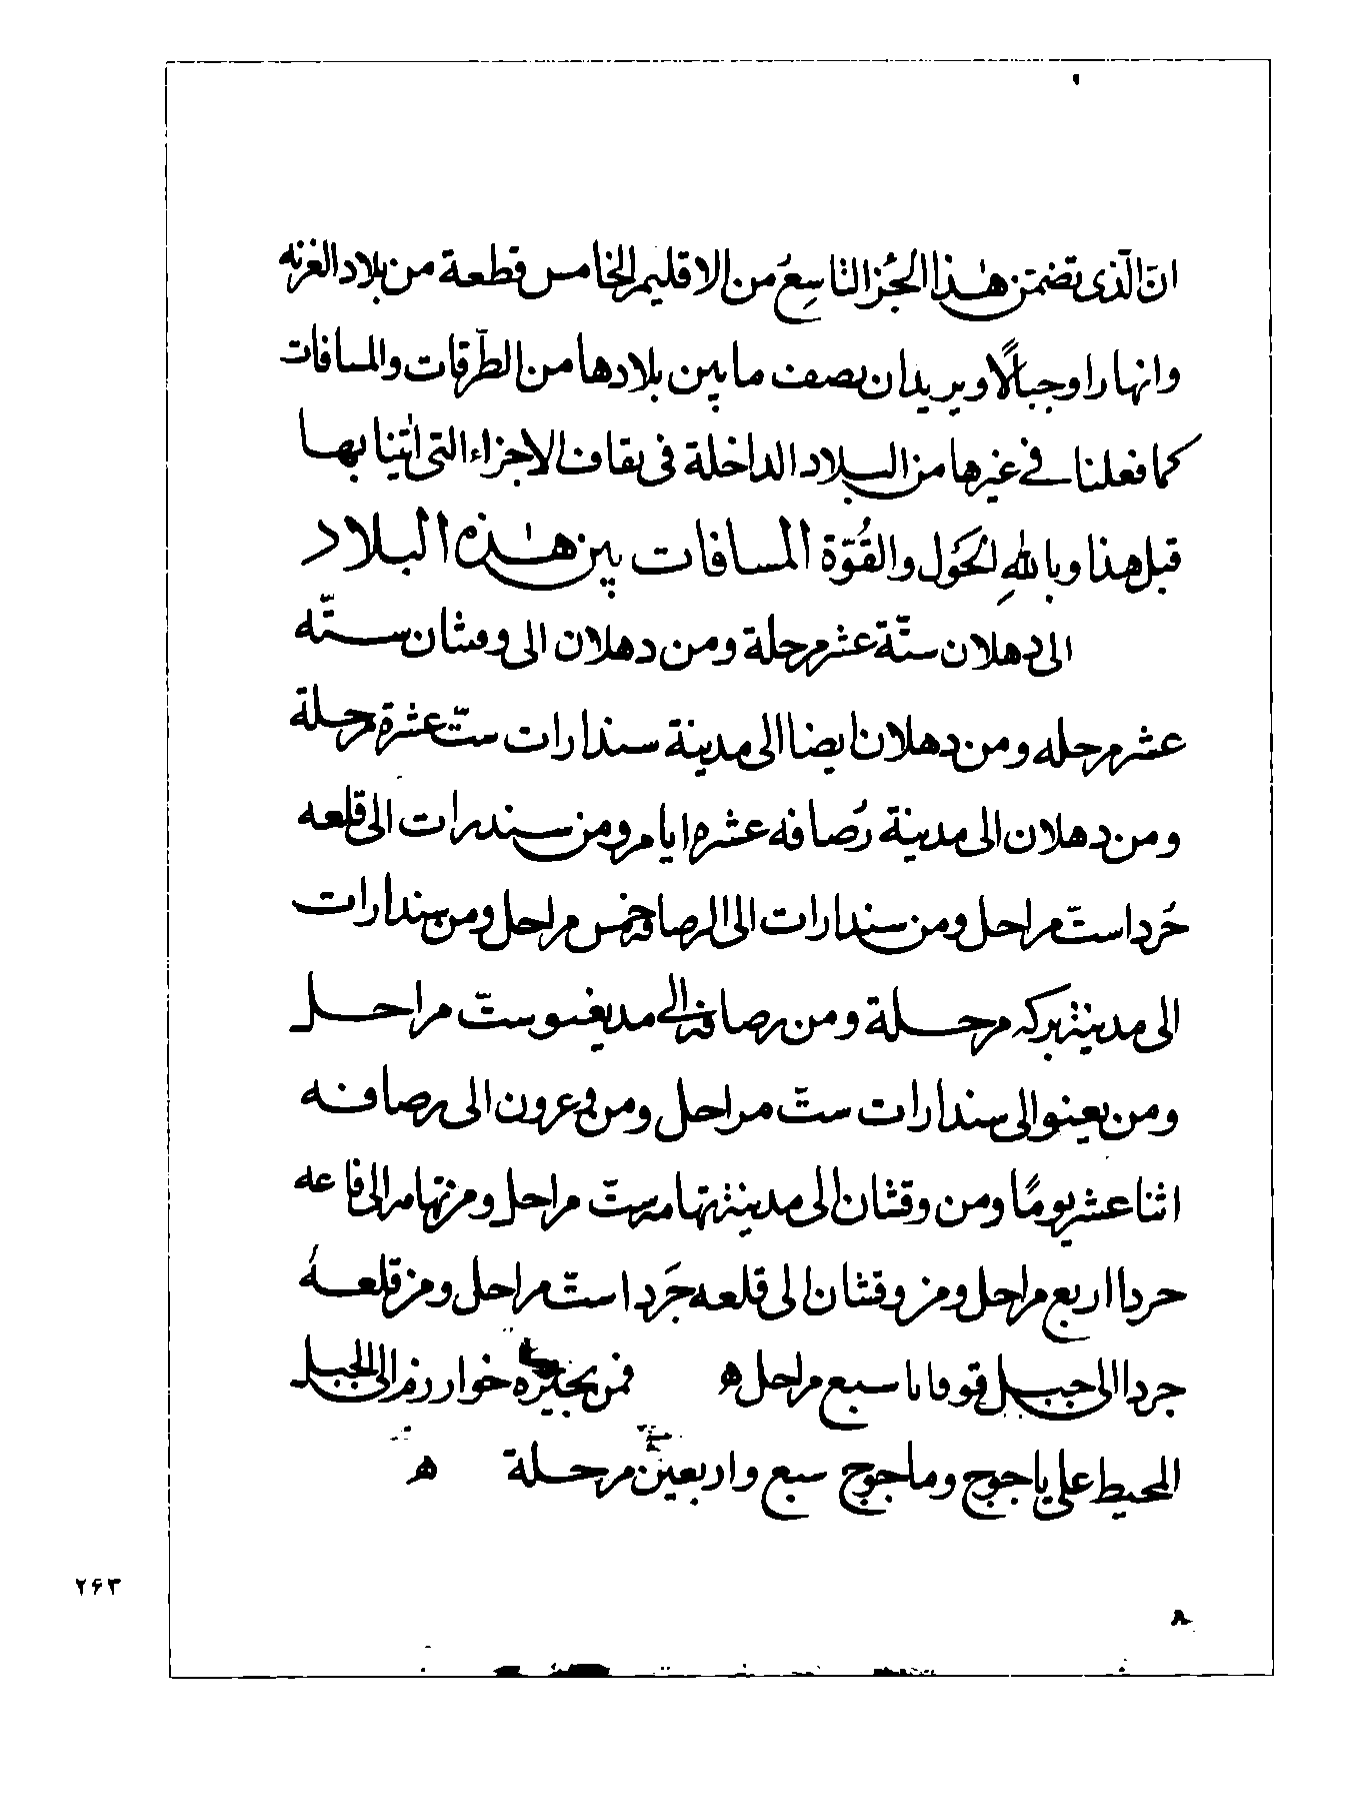 انّ الّذى تضمّن هٰذا الجُزا التاسِعُ من الاقليم الخامس قطعة من بلاد الغزيه
وانهارا وجبالًا ويريدان نصف ما بين بلادها من الطّرقات والمسافات
كما فعلنا فے غيرها من البلاد الداخلة فى الاجزاء التى اٰتينا بها
قبل هذا وباللهِ الحَول والقُوّة المسافات بين هٰذه البلاد
الى دهلان ستّة عشر مرحلة ومن دهلان الى وقثان ستّه
عشر مرحله ومن دهلان ايضا الى مدينة سندارات ستّ عشرة مرحلة
ومن دهلان الى مدينة رُصافه عشره ايام ومن سندرات الى قلعه
خُردا ستّ مراحل ومن سندارات الى الرصافة خمس مراحل ومن سندارات
الى مدينة بركه مرحلة ومن رصافة الے ستّ مراحل
ومن الى سندارات ستّ مراحل ومن الى رصافه
اثنا عشر يومًا ومن وقثان الى مدينة تهامه ستّ مراحل ومن تهامه الى قاعه
حردا اربع مراحل ومن وقثان الى قلعه جَردا ستّ مراحل ومن قلعهٔ
جردا الى جبل قوقايا سبع مراحل ه فمن بحيره خوارزم الى الجبل
المحيط على ياجوج وماجوج سبع واربعين مرحلة ه
٢۶٣
٨